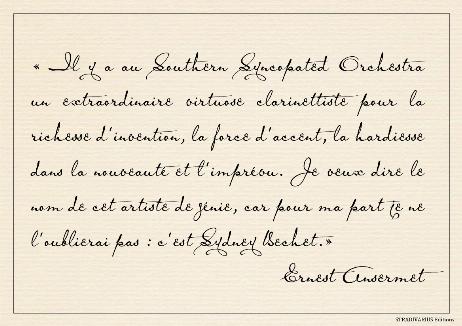 « Il y a au Southern Syncopated Orchestra
un extraordinaire virtuose clarinettiste pour la
richesse d'invention, la force d'accent, la hardiesse
dans la nouveauté et l'imprévu. Je veux dire le
nom de cet artiste de génie, car pour ma part je ne
l'oublierai pas : c'est Sydney Bechet. »
Ernest Ansermet
STRADIVARIUS Editions